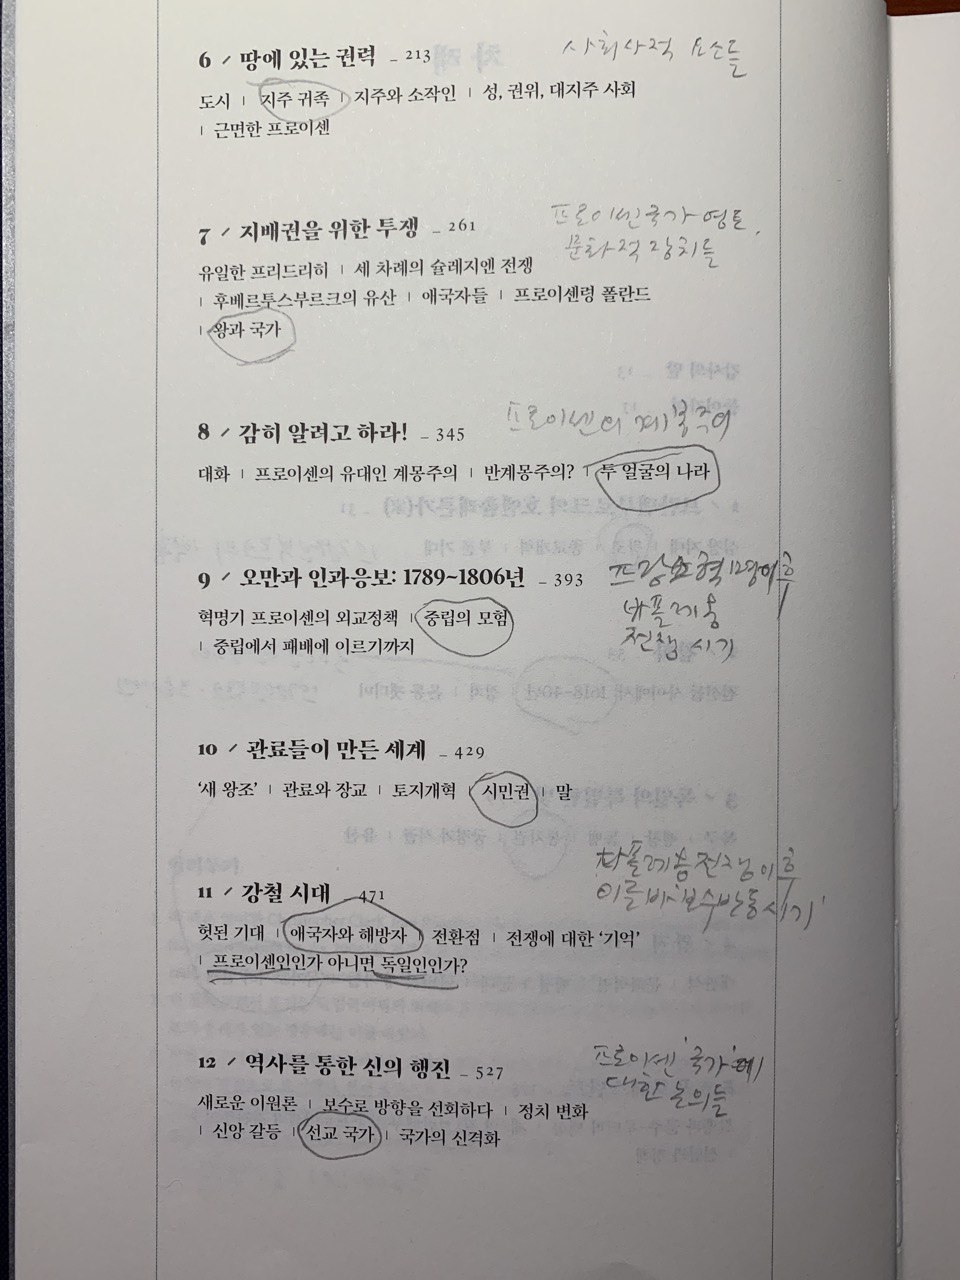 6 / 땅에 있는 권력 _ 213
사회사적 요소들
도시 | 지주 귀족 | 지주와 소작인 | 성, 권위, 대지주 사회
| 근면한 프로이센
7 / 지배권을 위한 투쟁 _ 261
프로이센국가 영토,
문화적 장치들
유일한 프리드리히 | 세 차례의 슐레지엔 전쟁
| 후베르투스부르크의 유산 | 애국자들 | 프로이센령 폴란드
| 왕과 국가
8 / 감히 알려고 하라! _ 345
프로이센의 계몽주의
대화 | 프로이센의 유대인 계몽주의 | 반계몽주의? | 두 얼굴의 나라
9 / 오만과 인과응보: 1789~1806년 _ 393
프랑스혁명이후
나폴레옹
전쟁 시기
혁명기 프로이센의 외교정책 | 중립의 모험
| 중립에서 패배에 이르기까지
10 / 관료들이 만든 세계 _ 429
‘새 왕조’ | 관료와 장교 | 토지개혁 | 시민권 | 말
나폴레옹전쟁이후
이른바 '보수반동시기'
11 / 강철 시대 _ 471
헛된 기대 | 애국자와 해방자 | 전환점 | 전쟁에 대한 ‘기억’
| 프로이센인인가 아니면 독일인인가?
12 / 역사를 통한 신의 행진 _ 527
프로이센 '국가'에
대한 논의들
새로운 이원론 | 보수로 방향을 선회하다 | 정치 변화
| 신앙 갈등 | 선교 국가 | 국가의 신격화